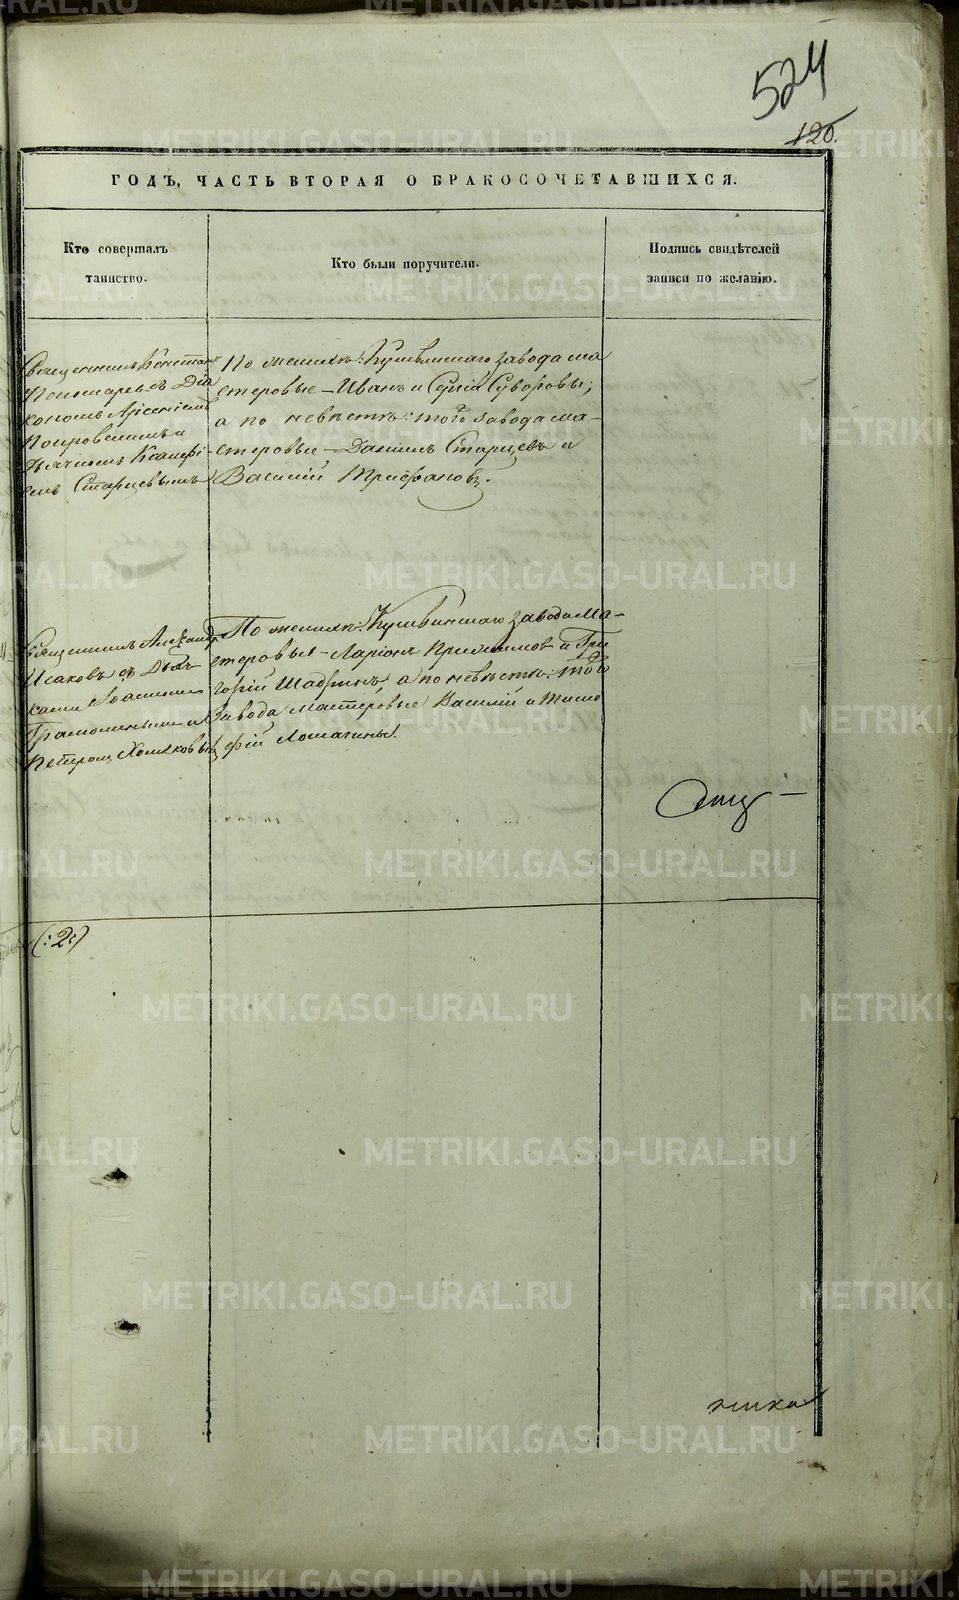 524
120.
ГОДЪ, ЧАСТЬ ВТОРАЯ О БРАКОСОЧЕТАВШИХСЯ.
Кто совершалъ
таинство.
Кто были поручители.
Подпись свидѣтелей
записи по желанію.
Священникъ Констан
Пономаревъ съ Діа
кономъ Арсеніемъ
Покровскимъ и
Дьячкомъ
Старцевымъ
По женихѣ: Кушвинскаго завода ма
стеровые – Иванъ и Суворовы,
а по невѣстѣ: того завода ма-
стеровые – Даніилъ Старцевъ и
Василій Трифановъ.
Священникъ Александръ
Исаковъ съ
Іоанномъ
и
Петромъ Хомяковымъ
По женихѣ: Кушвинскаго завода ма-
стеровые – Ларіонъ и Гри
горій Шадринъ, а по невѣстѣ: того
завода мастеровые Василій и Тимо
фій Ломагины.
(:2:)
METRIKI.GASO-URAL.RU